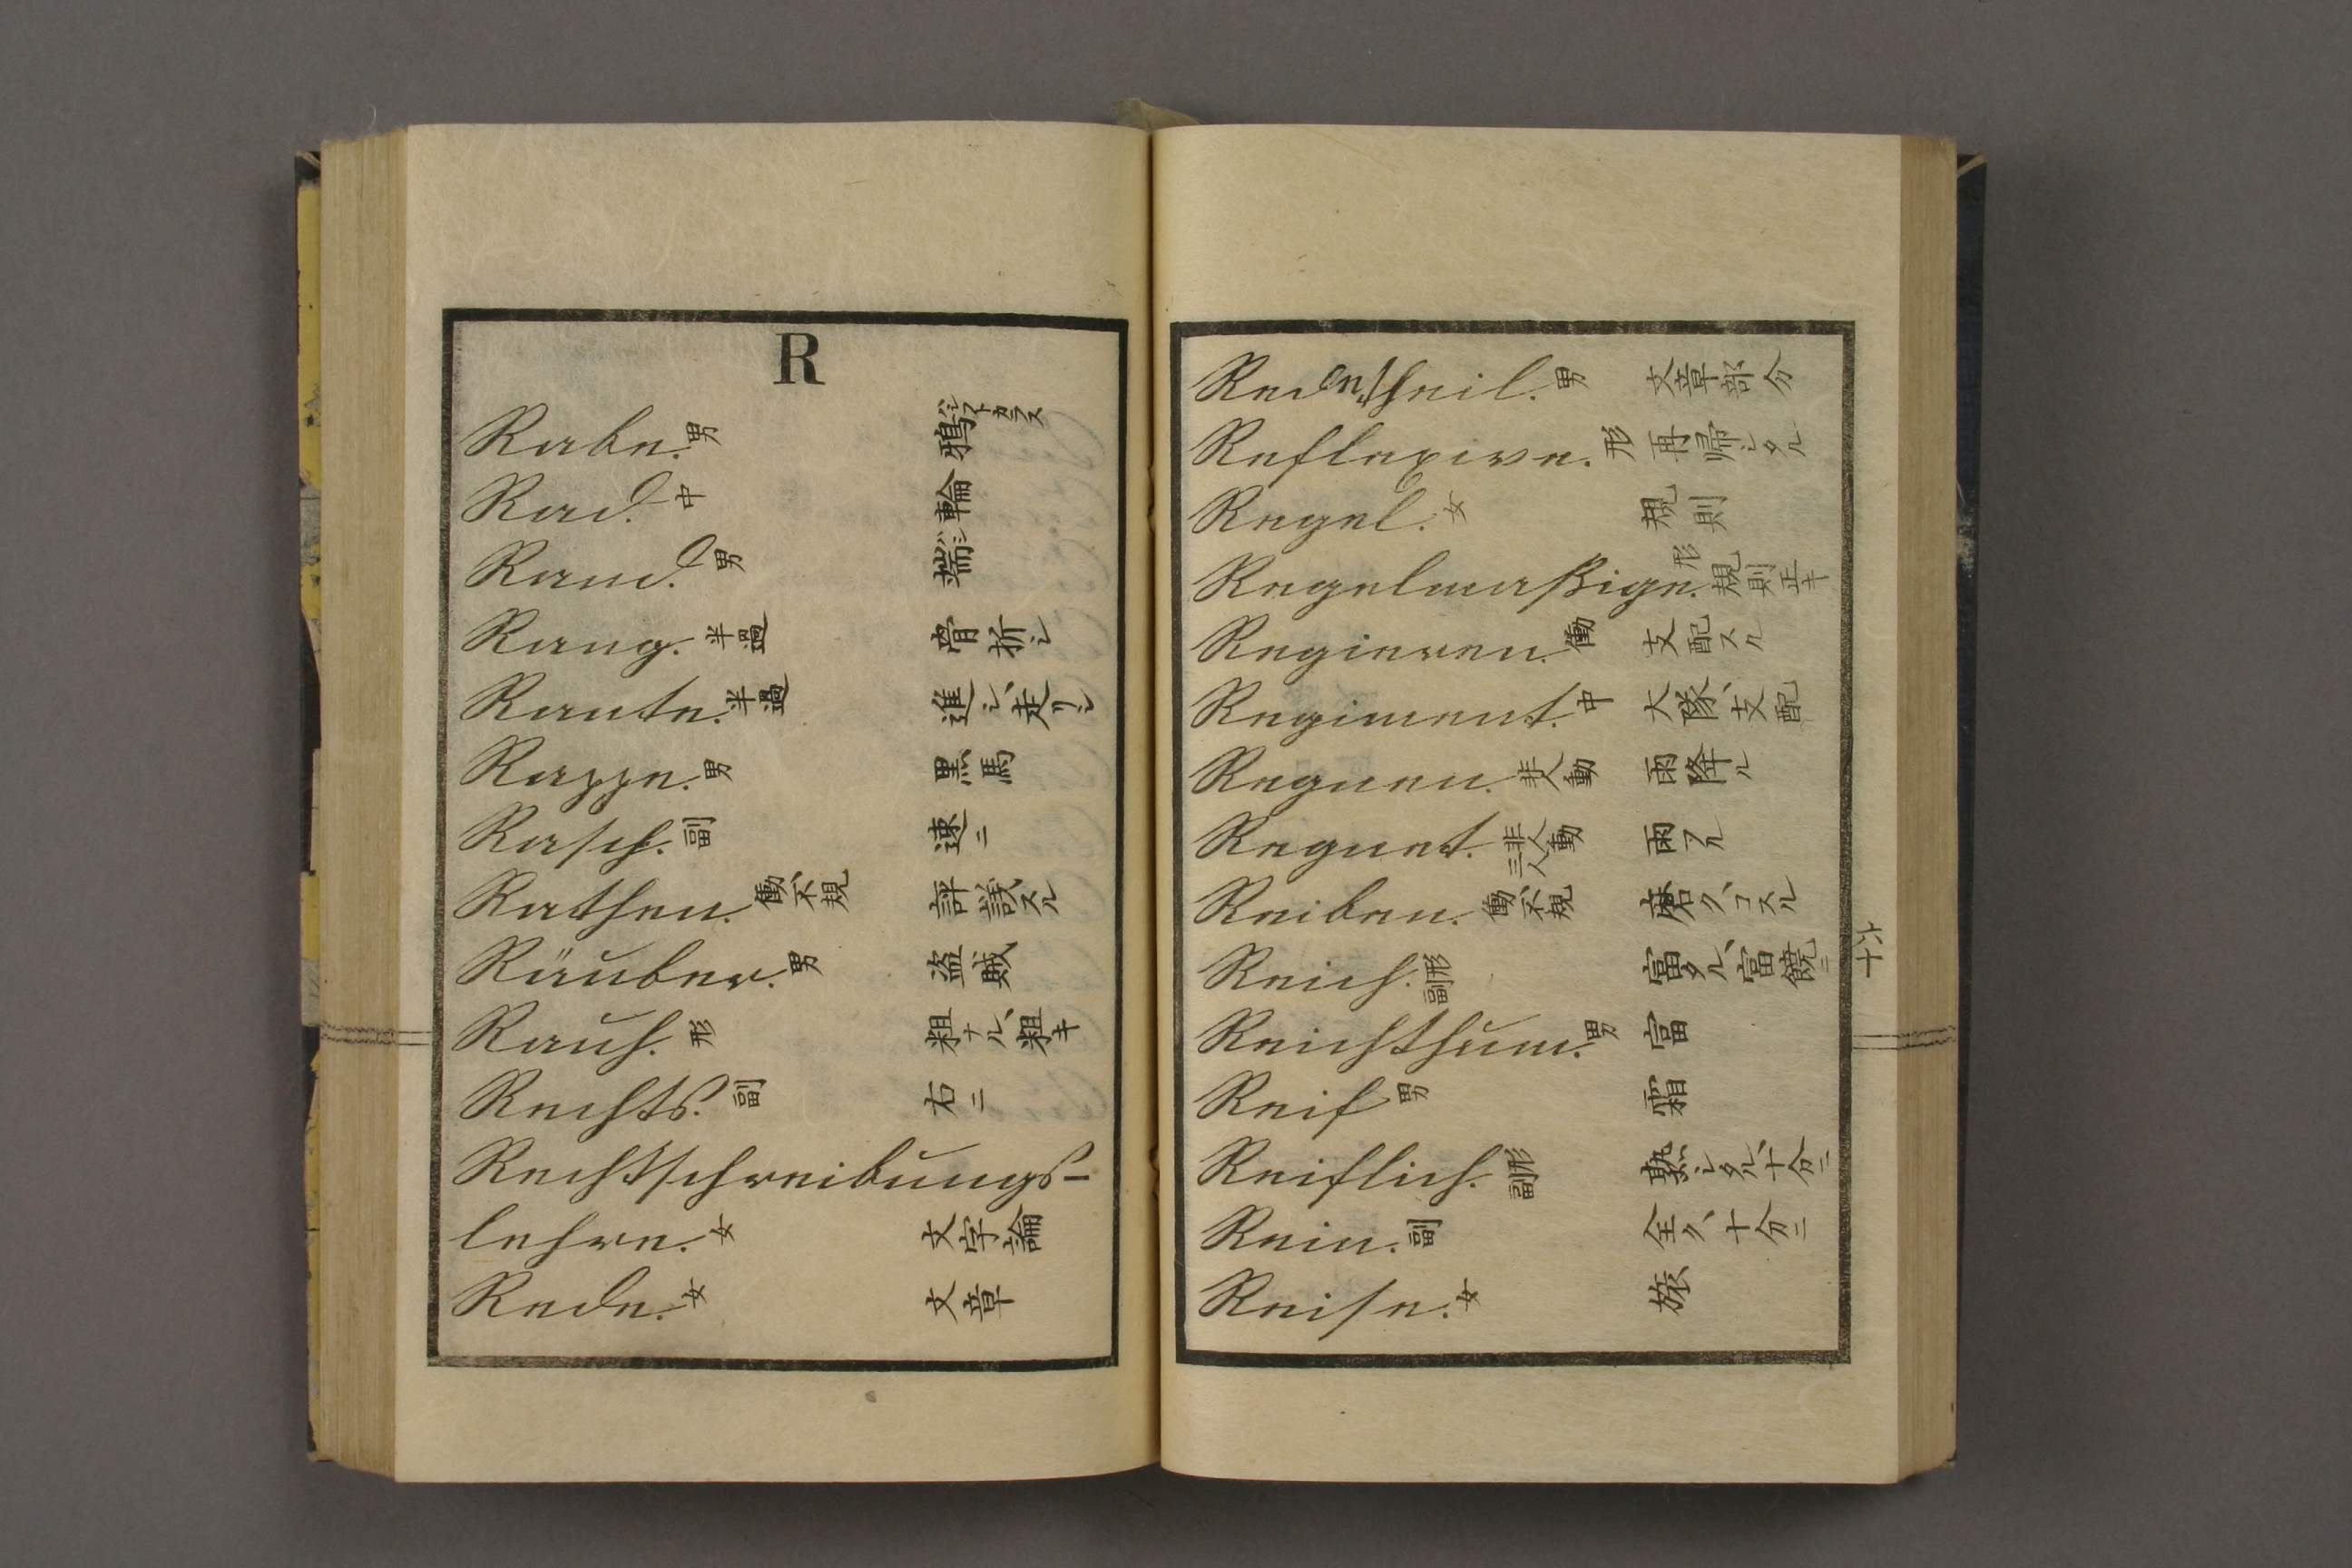 R
Rabe. 男 鴉 ハシブトカラス
Rad. 中 輪
Rand. 男 端
Rang. 半過 骨折シ
Rante. 半過 進シ、走リシ
Rappe. 男 黒馬
Rasch. 副 速ニ
Rathen. 働、不規 評議スル
Räuber. 男 盗賊
Rauh. 形 粗ナル、粗キ
Rechts. 副 右ニ
Rechtschreibungs-
lehre. 女 文字論
Rede. 女 文章
Redentheil. 男 文章部分
Reflexive. 形 再帰シタル
Regel. 女 規則
Regelmaßige. 形 規則正キ
Regieren. 働 支配スル
Regiment. 中 大隊、支配
Regnen. 非人動 雨降ル
Regnet. 非人動 三人 雨フル
Reiben. 働、不規 磨ク、コスル
Reich. 形副 富タル、富饒ニ
Reichthum. 男 富
Reif 男 霜
Reiflich. 形副 熟シタル、十分ニ
Rein. 副 全ク、十分ニ
Reise. 女 旅